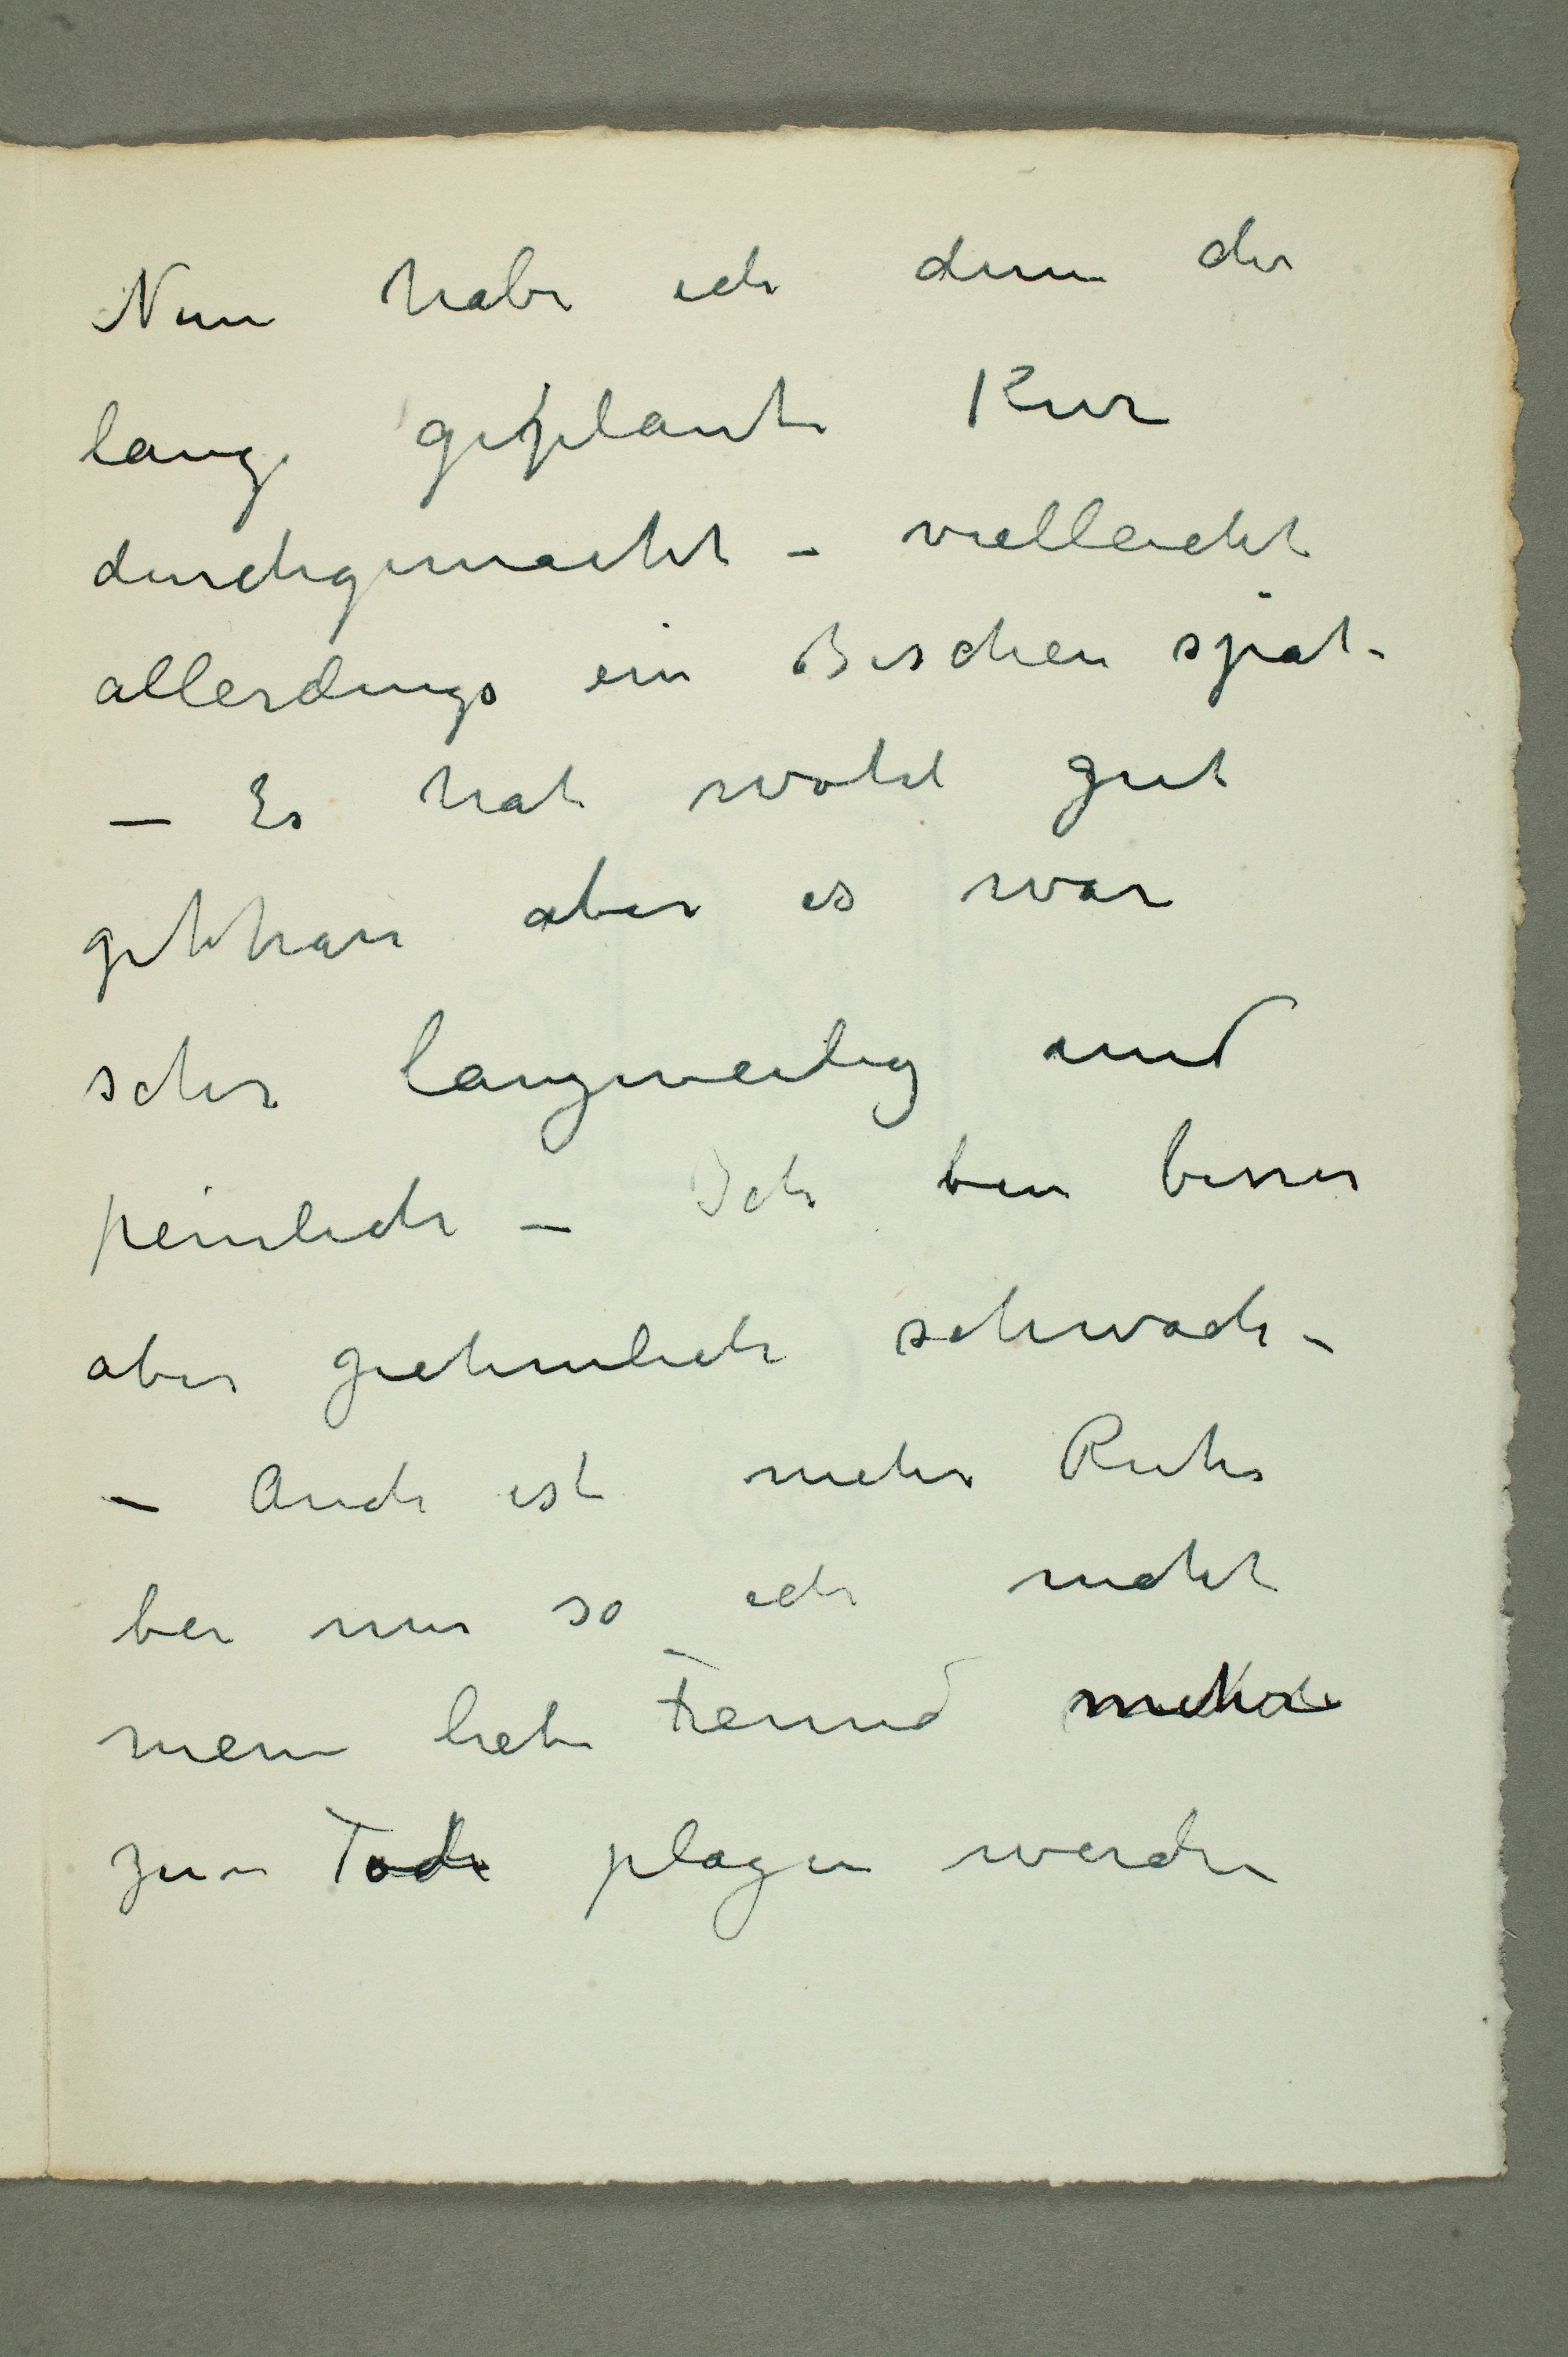 Nun habe ich denn die
lange geplante Kur
durchgemacht – vielleicht
allerdings ein Bischen spät –
– Es hat wohl gut
gethan aber es war
sehr langweilig und
peinlich – Ich bin besser
aber ziehmlich schwach –
– Auch ist mehr Ruhe
bei mir so ich nicht
mein liebe Freund mehr
zum Tode plagen werde